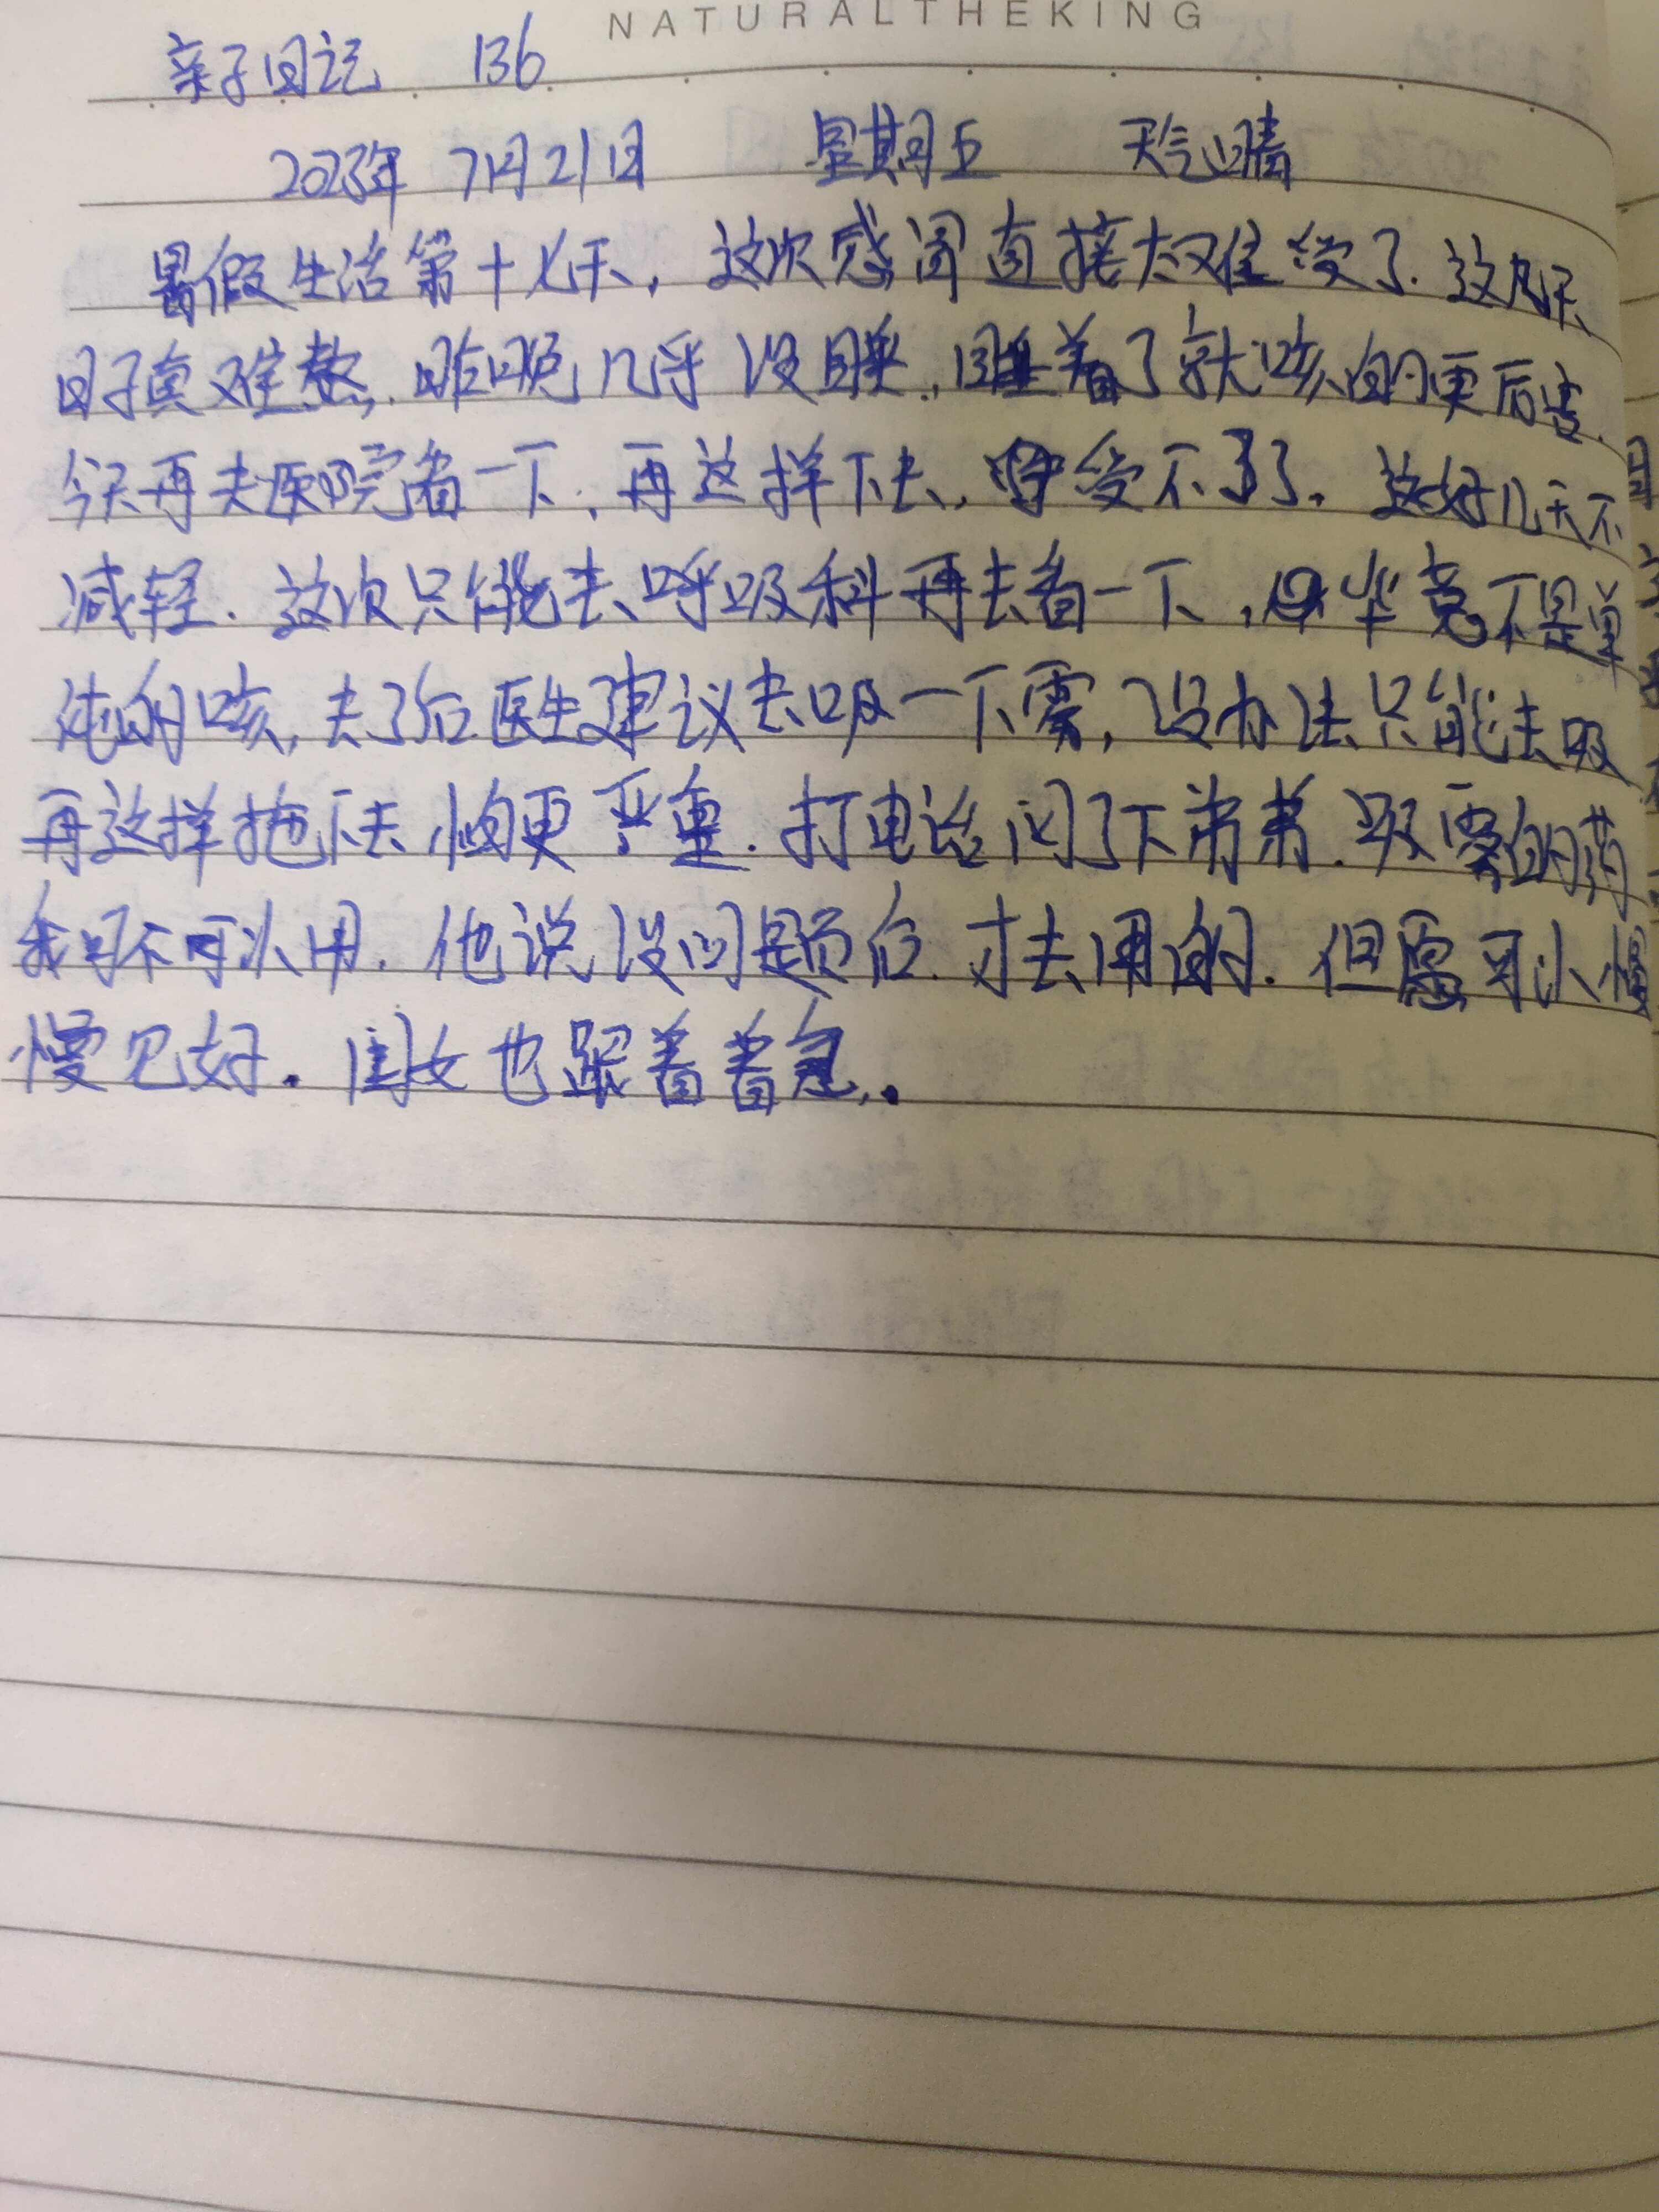 NATURALTHEKING
亲子日记 136
2023年 7月21日 星期五 天气晴
暑假生活第十七天,这次感直接太难受了.这几天
日子真难熬,昨晚几乎没睡,睡着了就咳的更厉害.
今天再去医院看一下,再这样下去,受不了了。这好几天不
减轻.这次只能去呼吸科再去看一下,毕竟不是单
纯的咳,去了后医生建议去吸一下雾,没办法只能去吸
再这样拖下去怕更严重.打电话问了下弟弟.吸雾的药
我可不可以用.他说没问题后.才去用的.但愿可以慢
慢见好.闺女也跟着着急。